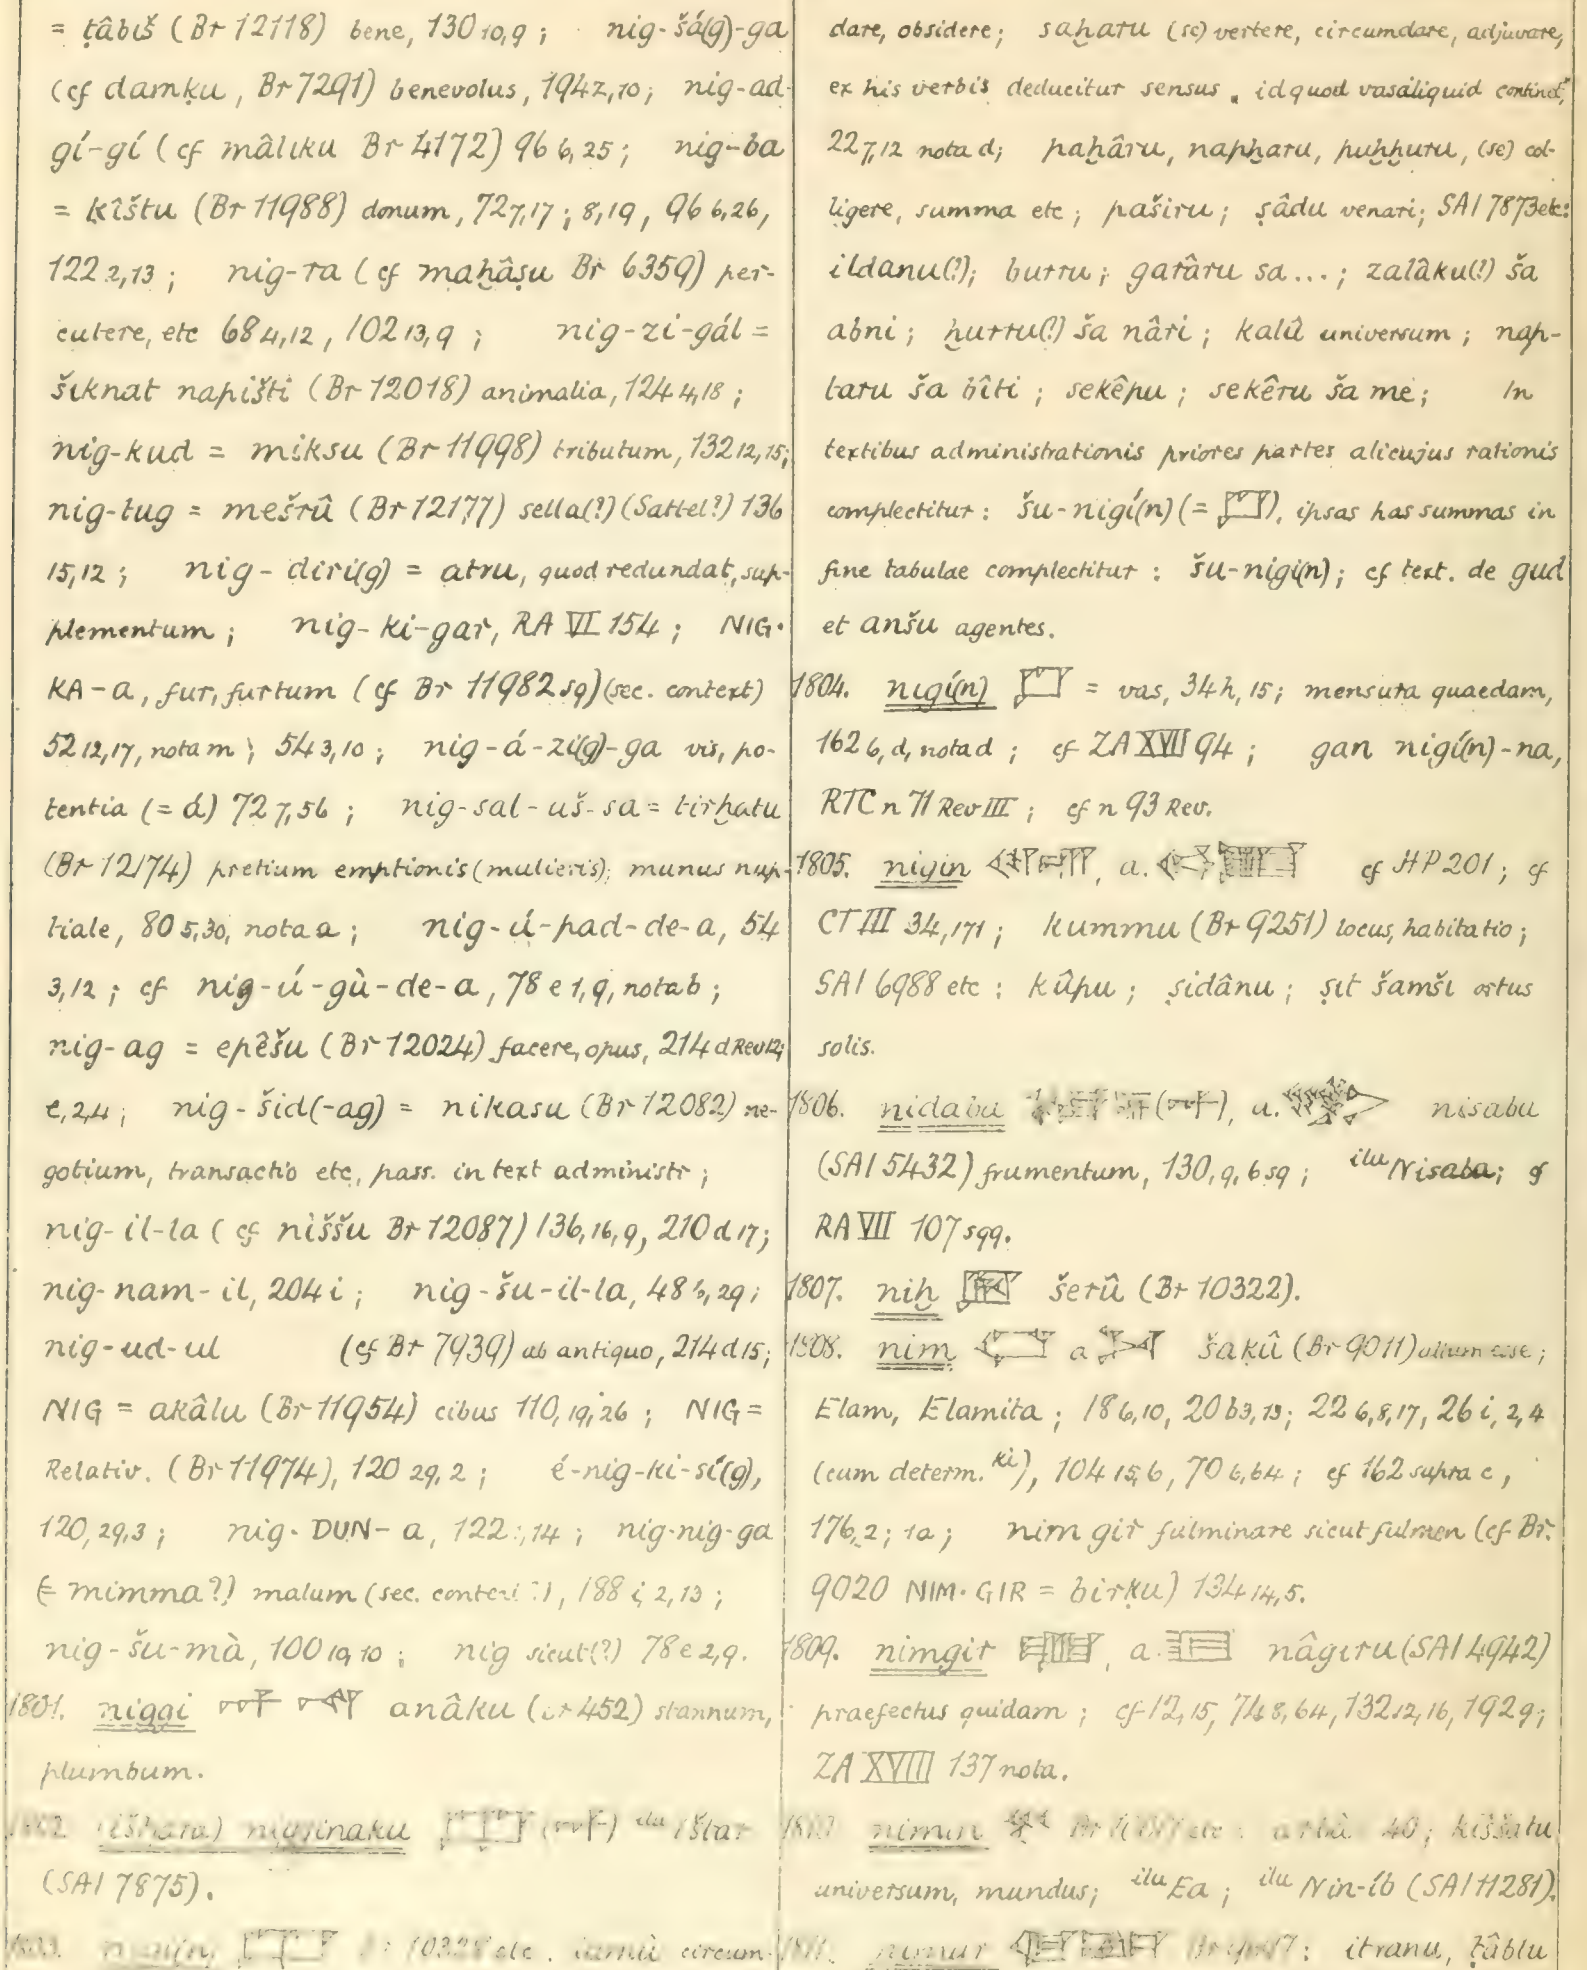 = ṭâbiš (Br 12118) bene, 130 10,9 ; nig-šá(g)-ga
(cf damḳu, Br 7291) benevolus, 194 z,10; nig-ad-
gí-gí (cf mâliku Br 4172) 96 6,25; nig-ba
= ḳîštu (Br 11988) donum, 72 7,17; 8,19, 96 6,26,
122 2,13 ; nig-ra (cf maḫâṣu Br 6359) per-
cutere, etc 68 4,12, 102 13,9 ; nig-zi-gál =
šiknat napišti (Br 12018) animalia, 124 4,18 ;
nig-kud = miksu (Br 11998) tributum, 132 12,15;
nig-tug = mešrû (Br 12177) sella(?) (Sattel?) 136
15,12 ; nig-diri(g) = atru, quod redundat, sup-
plementum ; nig-ki-gar, RA VI 154 ; NIG-
KA-a, fur, furtum (cf Br 11982 sq) (sec. context)
52 12,17, nota m ; 54 3,10 ; nig-á-zi(g)-ga vis, po-
tentia (= á) 72 7,56 ; nig-sal-uš-sa = tirḫatu
(Br 12174) pretium emptionis (mulieris); munus nup-
tiale, 80 5,30, nota a ; nig-ú-pad-de-a, 54
3,12 ; cf nig-ú-gù-de-a, 78 e 1,9, nota b ;
nig-ag = epêšu (Br 12024) facere, opus, 214 d Rev 12;
e,2,4 ; nig-šid(-ag) = nikasu (Br 12082) ne-
gotium, transactio etc, pass. in text administr ;
nig-il-la (cf niššu Br 12087) 136,16,9, 210 d 17;
nig-nam-il, 204 i ; nig-šu-il-la, 48 5,29;
nig-ud-ul (cf Br 7939) ab antiquo, 214 d 15;
NIG = akâlu (Br 11954) cibus 110,19,26 ; NIG =
Relativ. (Br 11974), 120 29,2 ; é-nig-ki-sí(g),
120,29,3 ; nig-DUN-a, 122 ,14 ; nig-nig-ga
(= mimma?) malum (sec. context ?), 188 i,2,13 ;
nig-šu-mà, 100 10,10 ; nig sicut(?) 78 e 2,9.
1801. niggi anâku (Br 452) stannum,
plumbum.
1802. (išḫara) nigginaku ilu Ištar
(SAI 7875).
1803. nigi(n) Br 10328 etc : lamû circum-
dare, obsidere; saḫaru (se) vertere, circumdare, adjuvare,
ex his verbis deducitur sensus „id quod vas aliquid continet",
22 7,12 nota d; paḫâru, napḫaru, puḫḫuru, (se) col-
ligere, summa etc ; paširu ; ṣâdu venari; SAI 7873 etc:
ildanu(?); burru ; garâru sa... ; zalâku(?) ša
abni ; ḫurru(?) ša nâri ; kalû universum ; nap-
taru ša bîti ; sekêpu ; sekêru ša me ; In
textibus administrationis priores partes alicujus rationis
complectitur : šu-nigí(n) (= ), ipsas has summas in
fine tabulae complectitur : šu-nigi(n) ; cf text. de gud
et anšu agentes.
1804. nigí(n) = vas, 34 h, 15; mensura quaedam,
162 6,d, nota d ; cf ZA XVII 94 ; gan nigí(n)-na,
RTC n 71 Rev III ; cf n 93 Rev.
1805. nigin , a. cf HP 201 ; cf
CT III 34,171 ; kummu (Br 9251) locus, habitatio ;
SAI 6988 etc : kûpu ; ṣidânu ; ṣit šamši ortus
solis.
1806. nidabu , a. nisabu
(SAI 5432) frumentum, 130,9,6 sq ; ilu Nisaba; cf
RA VII 107 sqq.
1807. niḫ šerû (Br 10322).
1808. nim a šaḳû (Br 9011) altum esse ;
Elam, Elamita ; 18 6,10, 20 b3,13; 22 6,8,17, 26 i, 2,4
(cum determ. ki), 104 15,6, 70 6,64 ; cf 162 supra c,
176,2; 1a ; nim gir fulminare sicut fulmen (cf Br.
9020 NIM-GIR = birḳu) 134 14,5.
1809. nimgir , a. nâgiru (SAI 4942)
praefectus quidam ; cf 12,15, 74 8,64, 132 12,16, 192 g;
ZA XVIII 137 nota.
1810. nimin etc : arbâ 40; kiššatu
universum, mundus; ilu Ea ; ilu Nin-íb (SAI 11281).
1811. nimur : itranu, ṭâblu